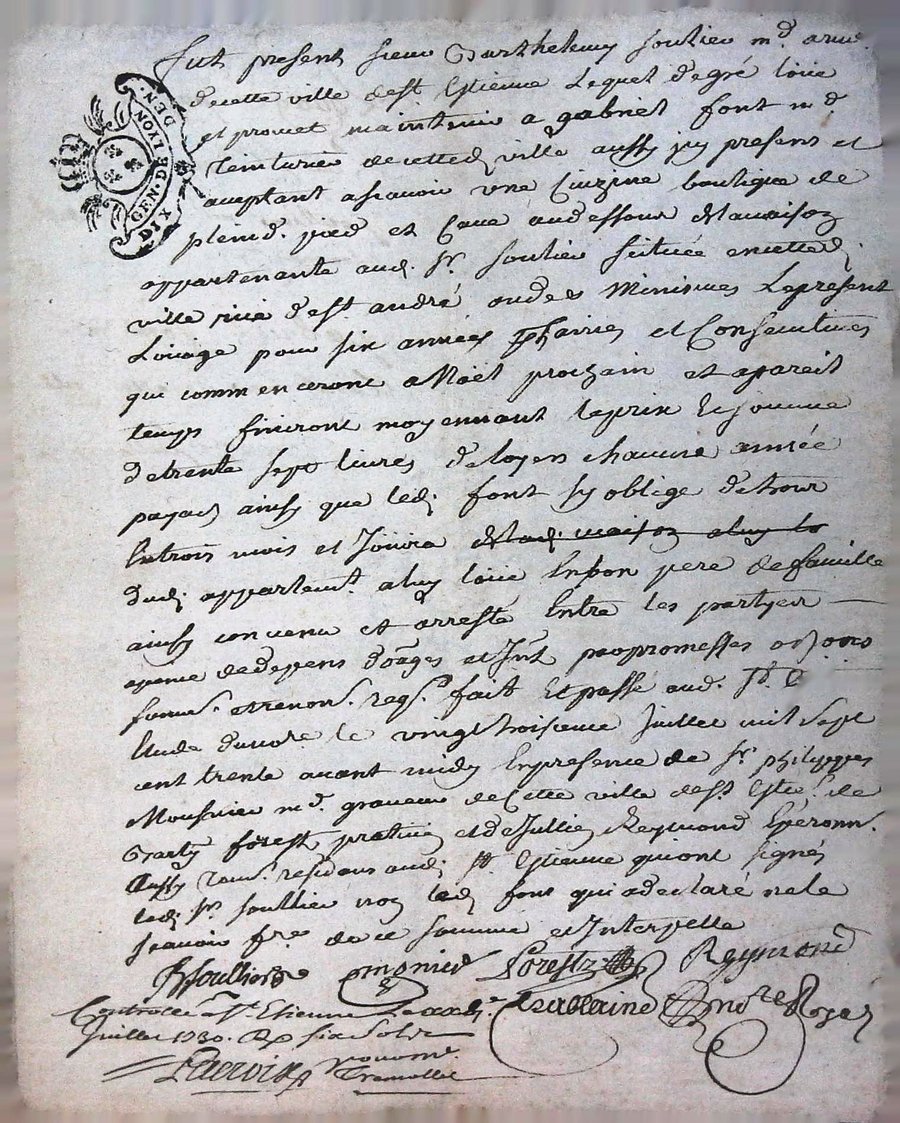 Fut present sieur Barthelemy soulier md. armr.
de cette ville de st Estienne Lequel de gré loüe
et promet maintenir a gabriel font md
Teinturier de cetted ville aussy icy present et
aceptant ascavoir une Cuizine boutique de
plein pied et Cave audessous de la maison
appartenante aud. sr. soulier située en cetted.
ville rüe de st andré ou des Minismes Le present
Loüage pour six années et Consecutives
qui commenceront a Noël prochain et a pareil
temps finiront moyennant le prix et somme
de trente sept livres de loyer chacune année
payab ainsy que led. font sy oblige de
En trois mois et Joüira
dud. appartemt. a luy loüé En bon pere de famille
ainsy convenu et arresté Entre les partyes
a peine de depens et promesses
renonc. fait Et passé aud. St. E.
Etude du nore. le vingt troisieme Juillet mil sept
cent trente avant midy En presence de sr. philippes
Mousnier md. graveur de Cette ville de st. Estie. de
forest praticien et de Jullien Reymond
Aussy residans aud. st. Estienne qui ont signés
led. sr. soullier non led. font qui a declaré ne le
scavoir fre. de ce sommé et Interpellé
Soullier monier Forestz Reymond
nore Royal
Controllé a St. Etienne
Juillet 1730. Rx six Sols
Tremollet
GEN. DE LYON
DIX DEN.